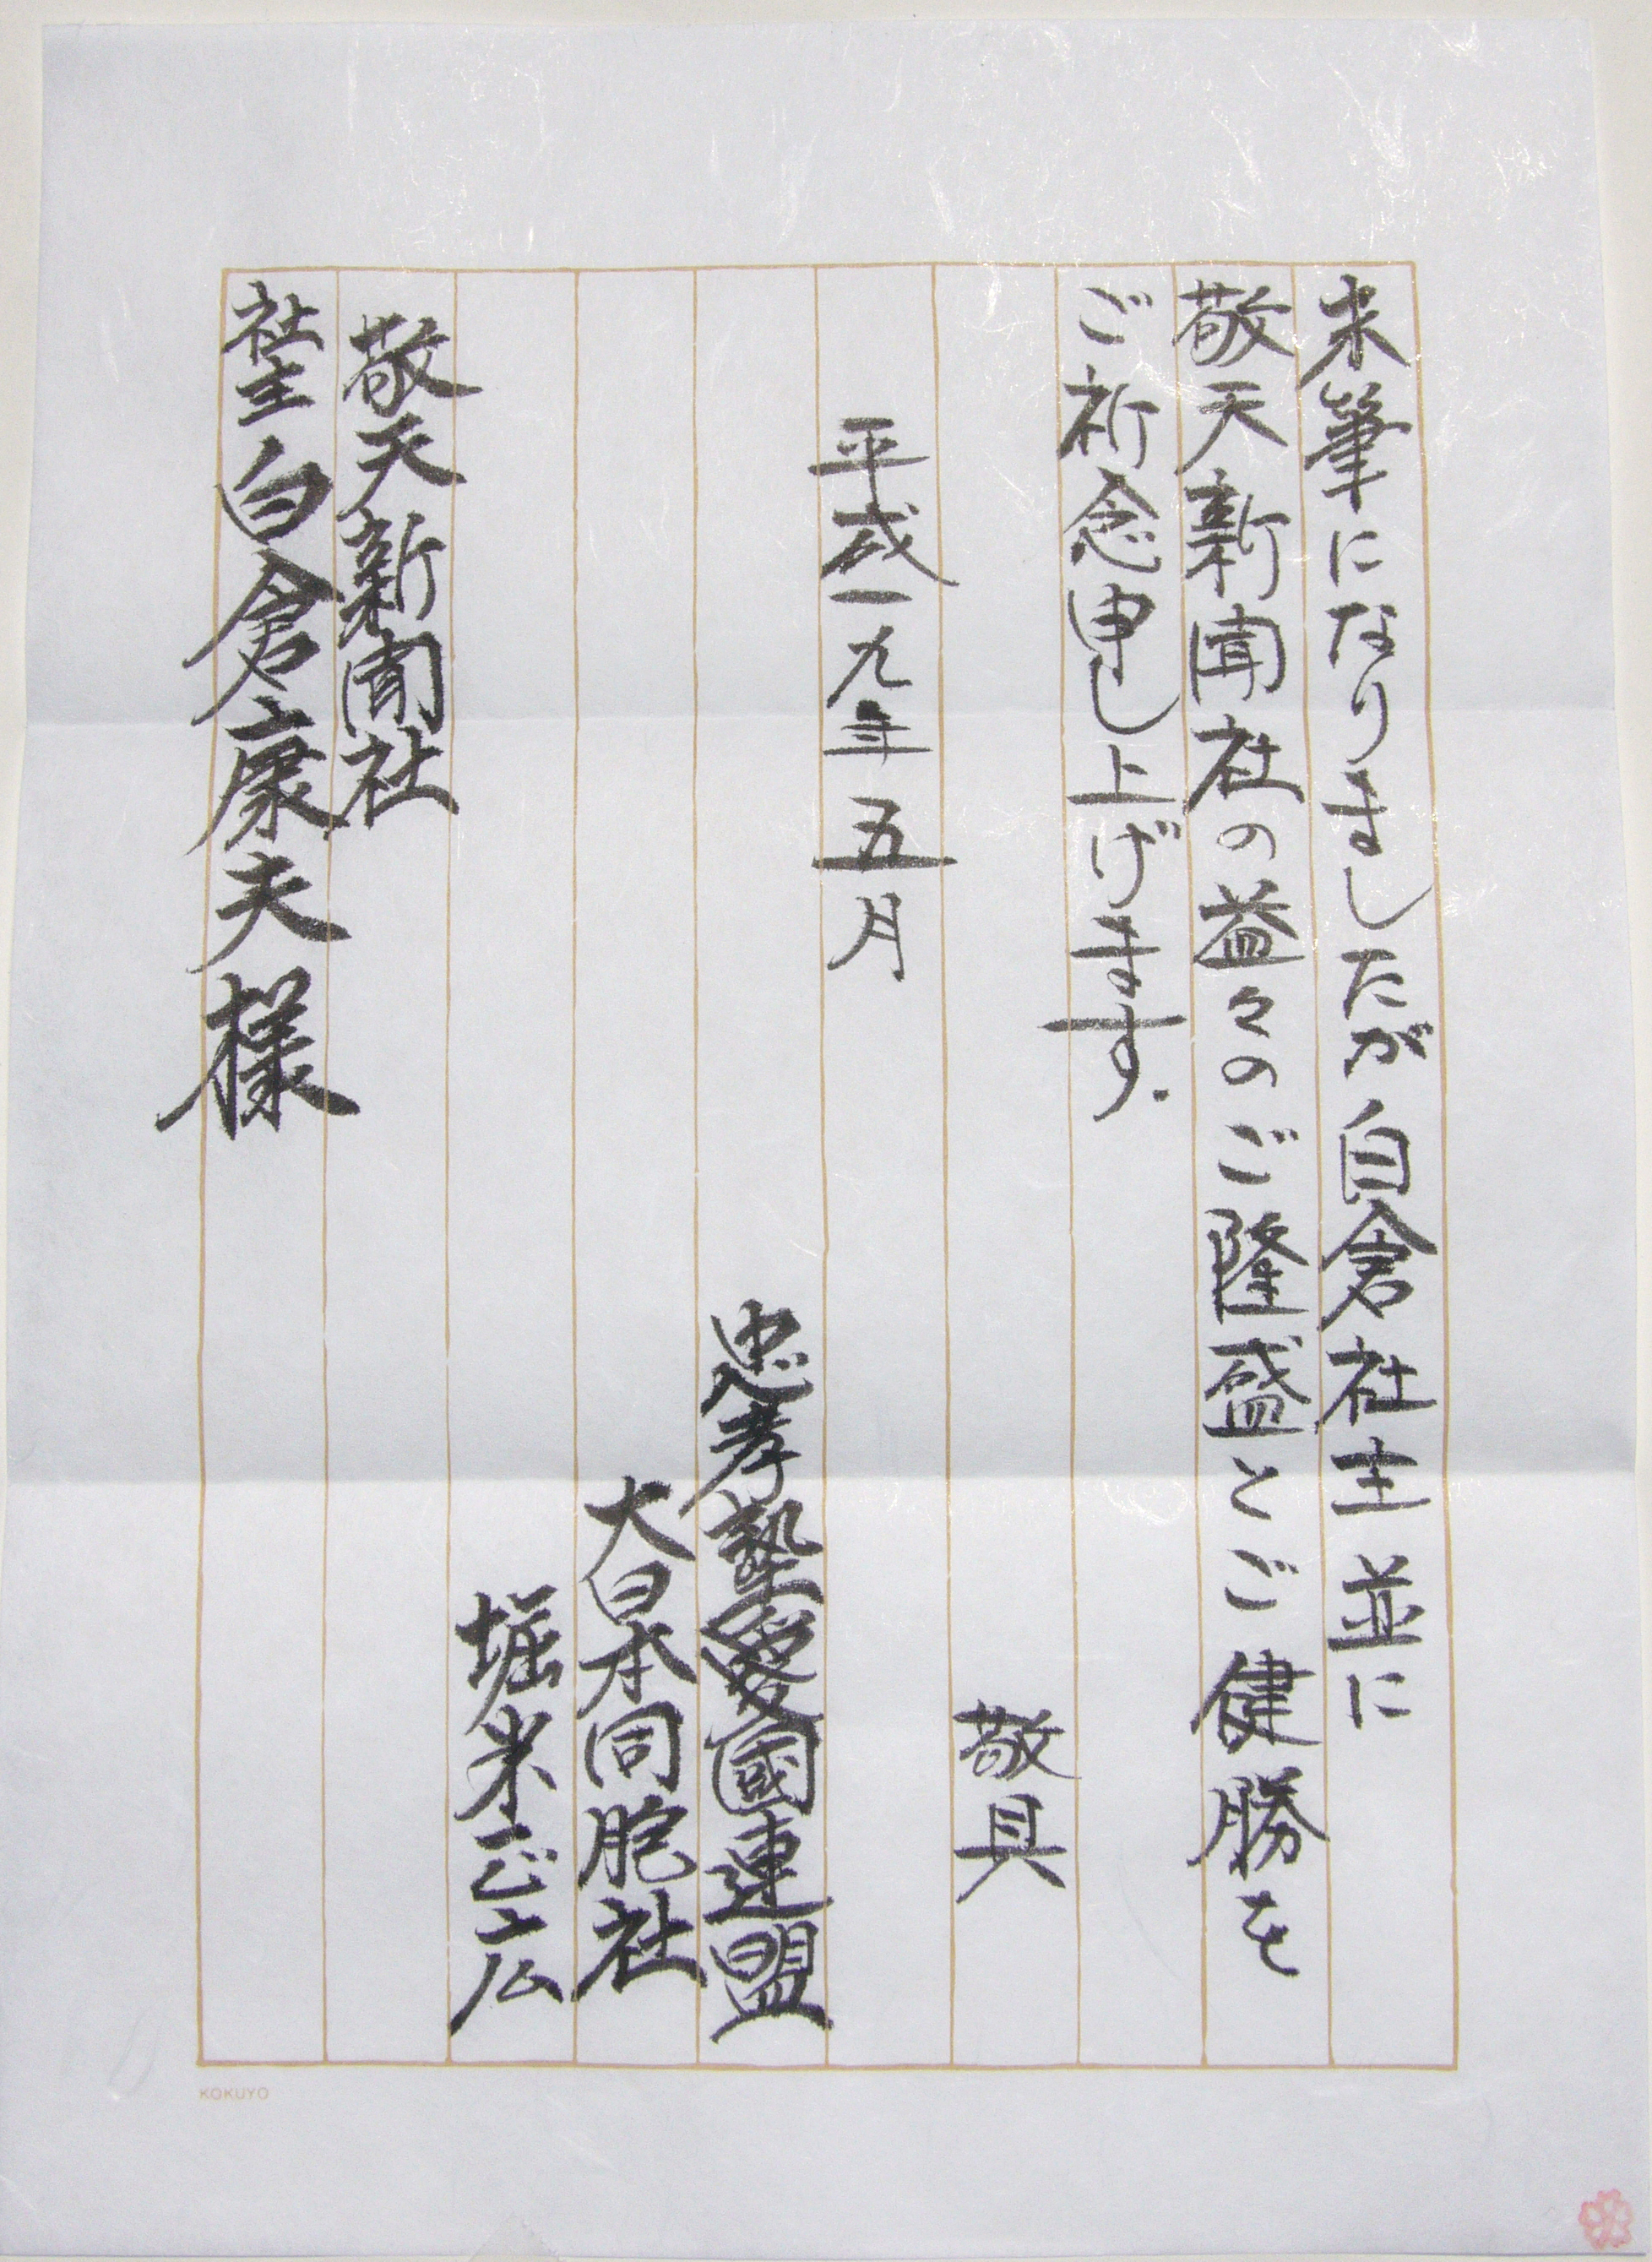 末筆になりましたが白倉社主並に
敬天新聞社の益々のご隆盛とご健勝を
ご祈念申し上げます.
敬具
平成一九年五月
忠孝塾愛國連盟
大日本同胞社
堀米正広
敬天新聞社
社主 白倉康夫様
KOKUYO